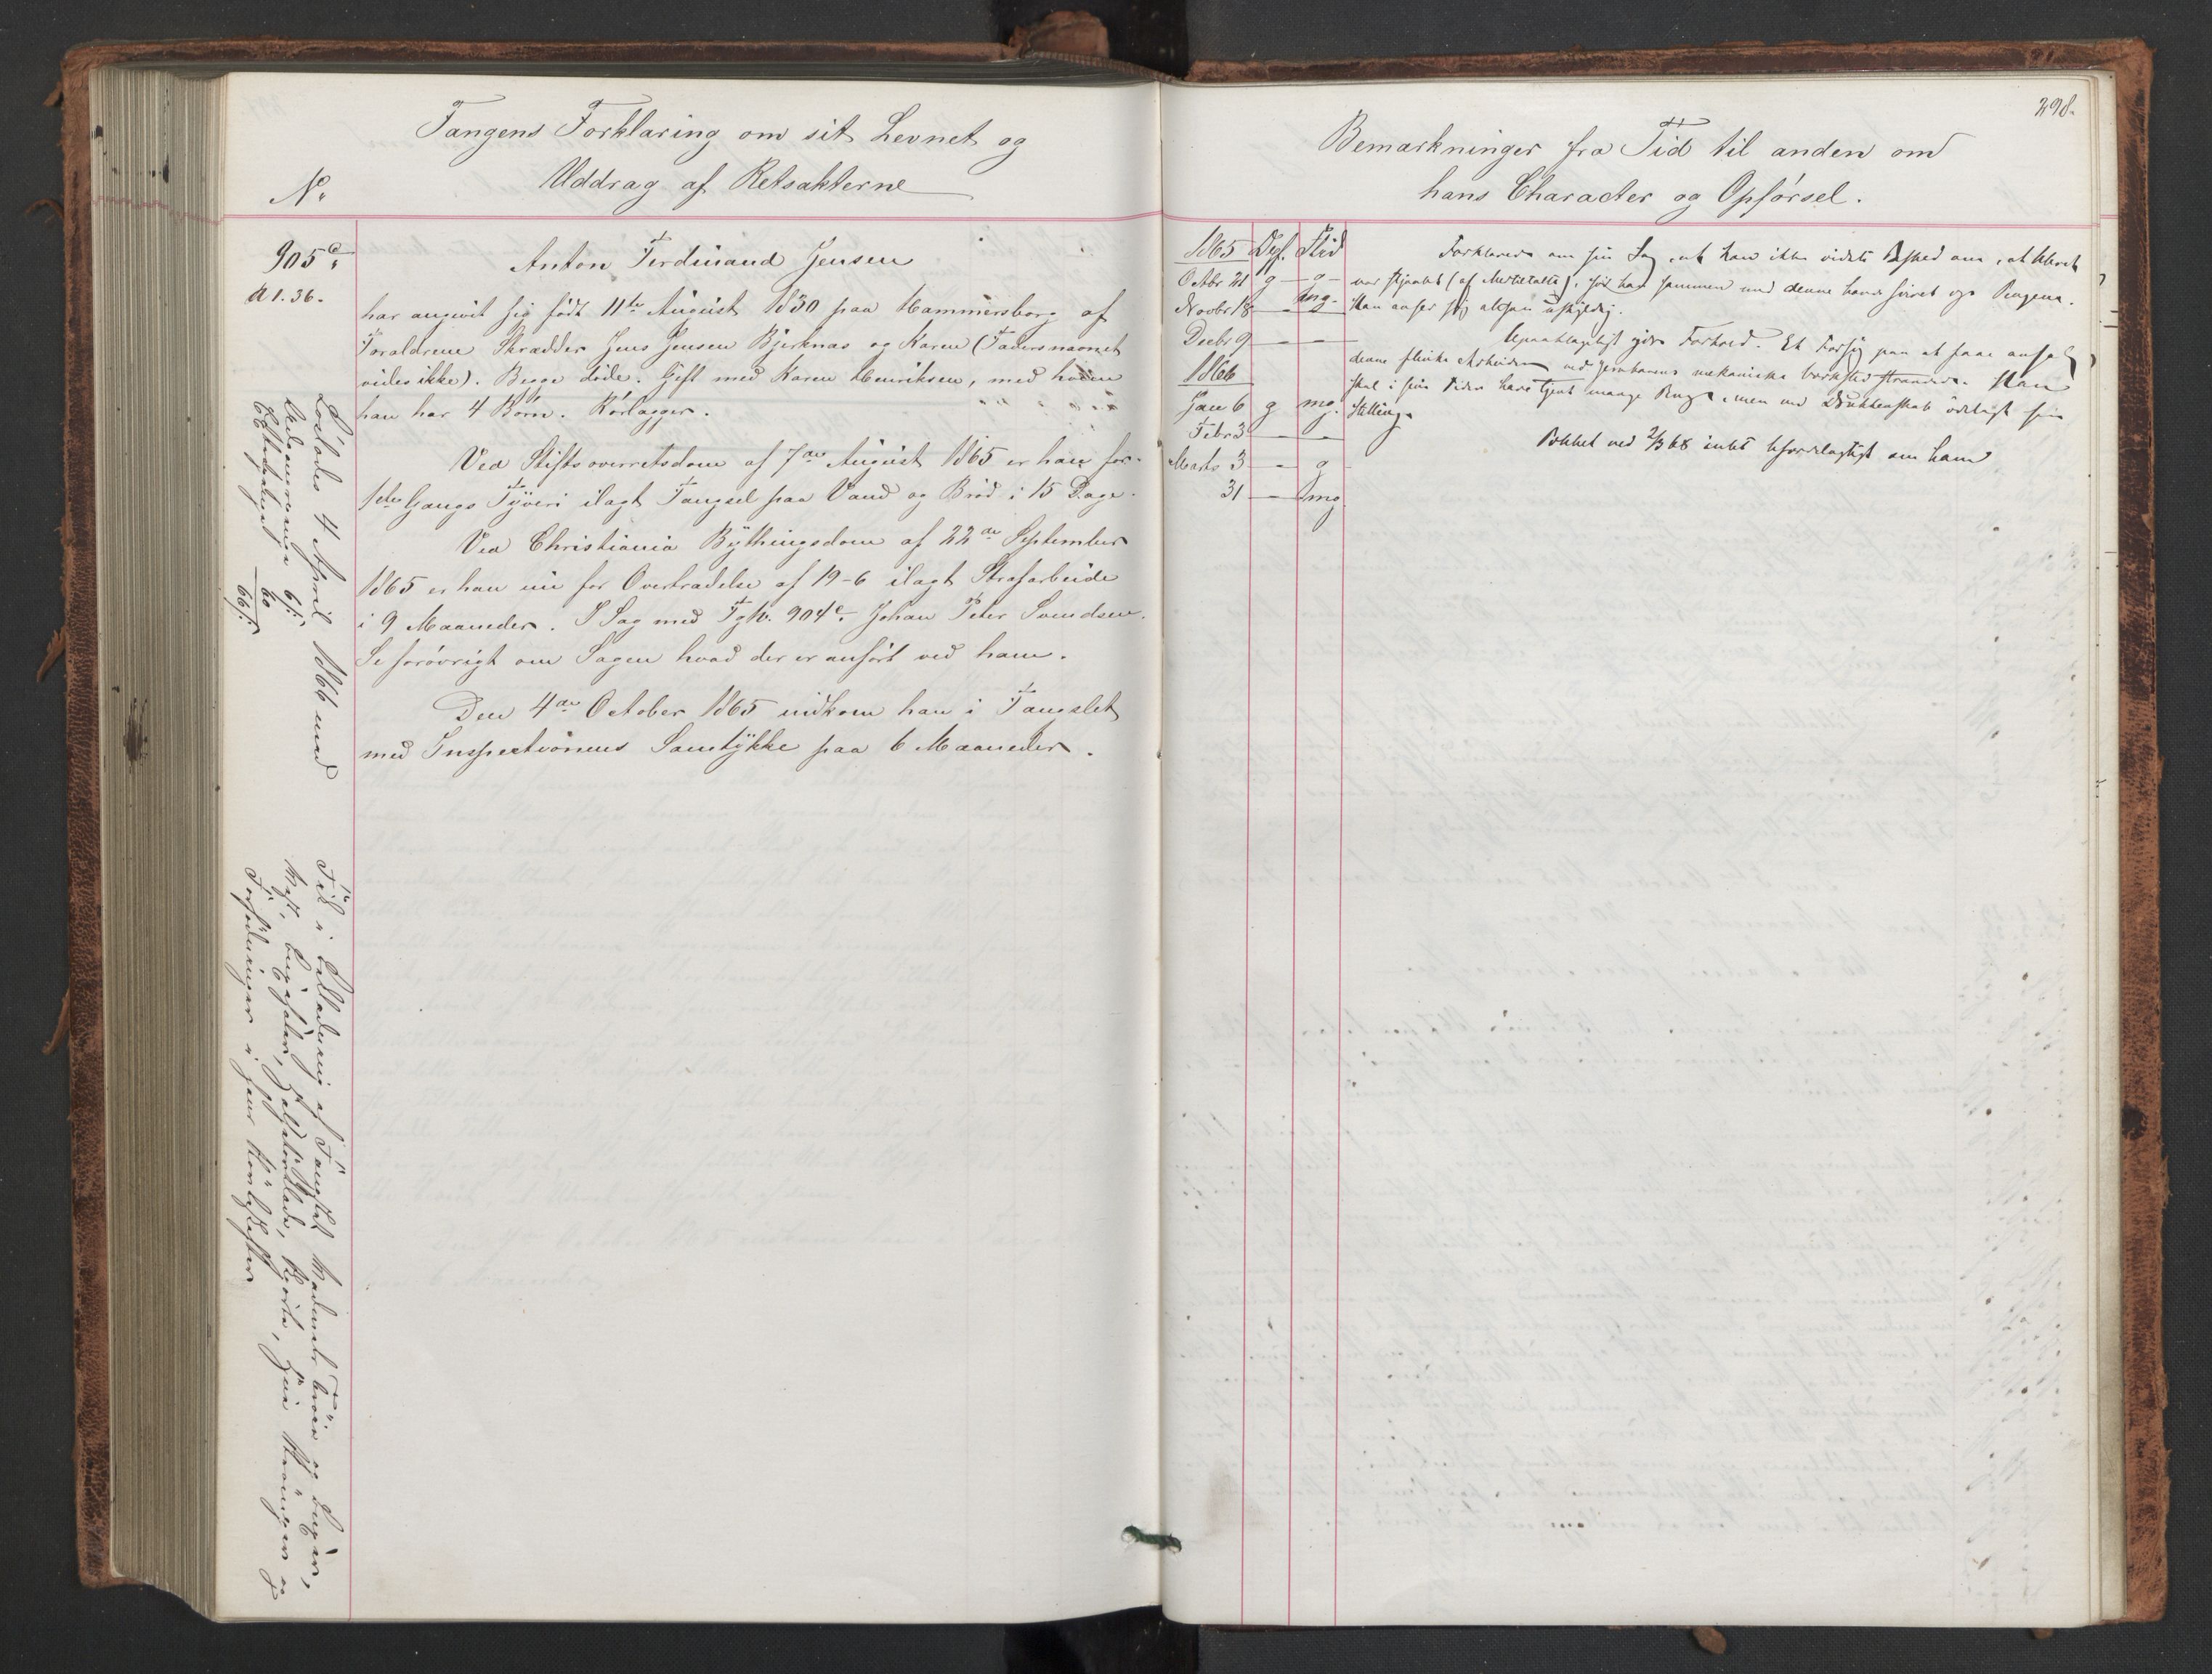 Fangens Forklaring om sit Levnet og
Uddrag af Retsakterne
No
905c.
A 1.36.
Anton Ferdinand Jensen
har angivit sig født 11te August 1830 paa Hammersborg af
Forældrene Skrædder Jens Jensen Bjerknæs og Karen (Fadersnavnet
vides ikke). Begge døde. Gift med Karen Henriksen, med hvem
han har 4 Børn. Rørlægger.
Ved Stiftsoverretsdom af 7de August 1865 er han for
1ste Gangs Tyveri ilagt Fængsel paa Vand og Brød i 15 Dage.
Ved Christiania Bythingsdom af 22de September
1865 er han nu for Overtrædelse af 19-6 ilagt Strafarbeide
i 9 Maaneder. I Sag med Fg No. 904c. Johan Peter Svendsen.
Se forøvrigt om Sagen hvad der er anført ved ham.
Den 4de October 1865 indkom han i Fængslet
med Inspectionens Samtykke paa 6 Maaneder.
Løslodes 4 April 1866 med
6
60
66
Fik i Beklædning af Fængslet Vadmels Trøie og Buxer,
Vest, Halstørklæde, Skjorte,
i hans
298.
Bemærkninger fra Tid til anden om
hans Character og Opførsel.
1865 Opf. Flid
Octbr 21 g g
Novbr 18 — mg
Decbr 9 — —
1866
Jan 6 g mg.
Febr 3 — —
Marts 3 — g
31 — mg
Forklarer om sin Sag, at han ikke vidste Besked om, at Uhret
var stjaalet (af Medtiltalte), før han sammen med denne havde sviret op Pengene.
Han anser sig altsaa uskyldig.
Upaaklageligt godt Forhold. Et Forsøg paa at faae ansat
denne flinke Arbeider ved Jernbanens mekaniske Værksted strandede. Han
skal i sin Tid have tjent mange Penge, men ved Drukkenskab ødelagt sin
Stilling.
Protokol ved 2/3 68 intet ufordelagtigt om ham